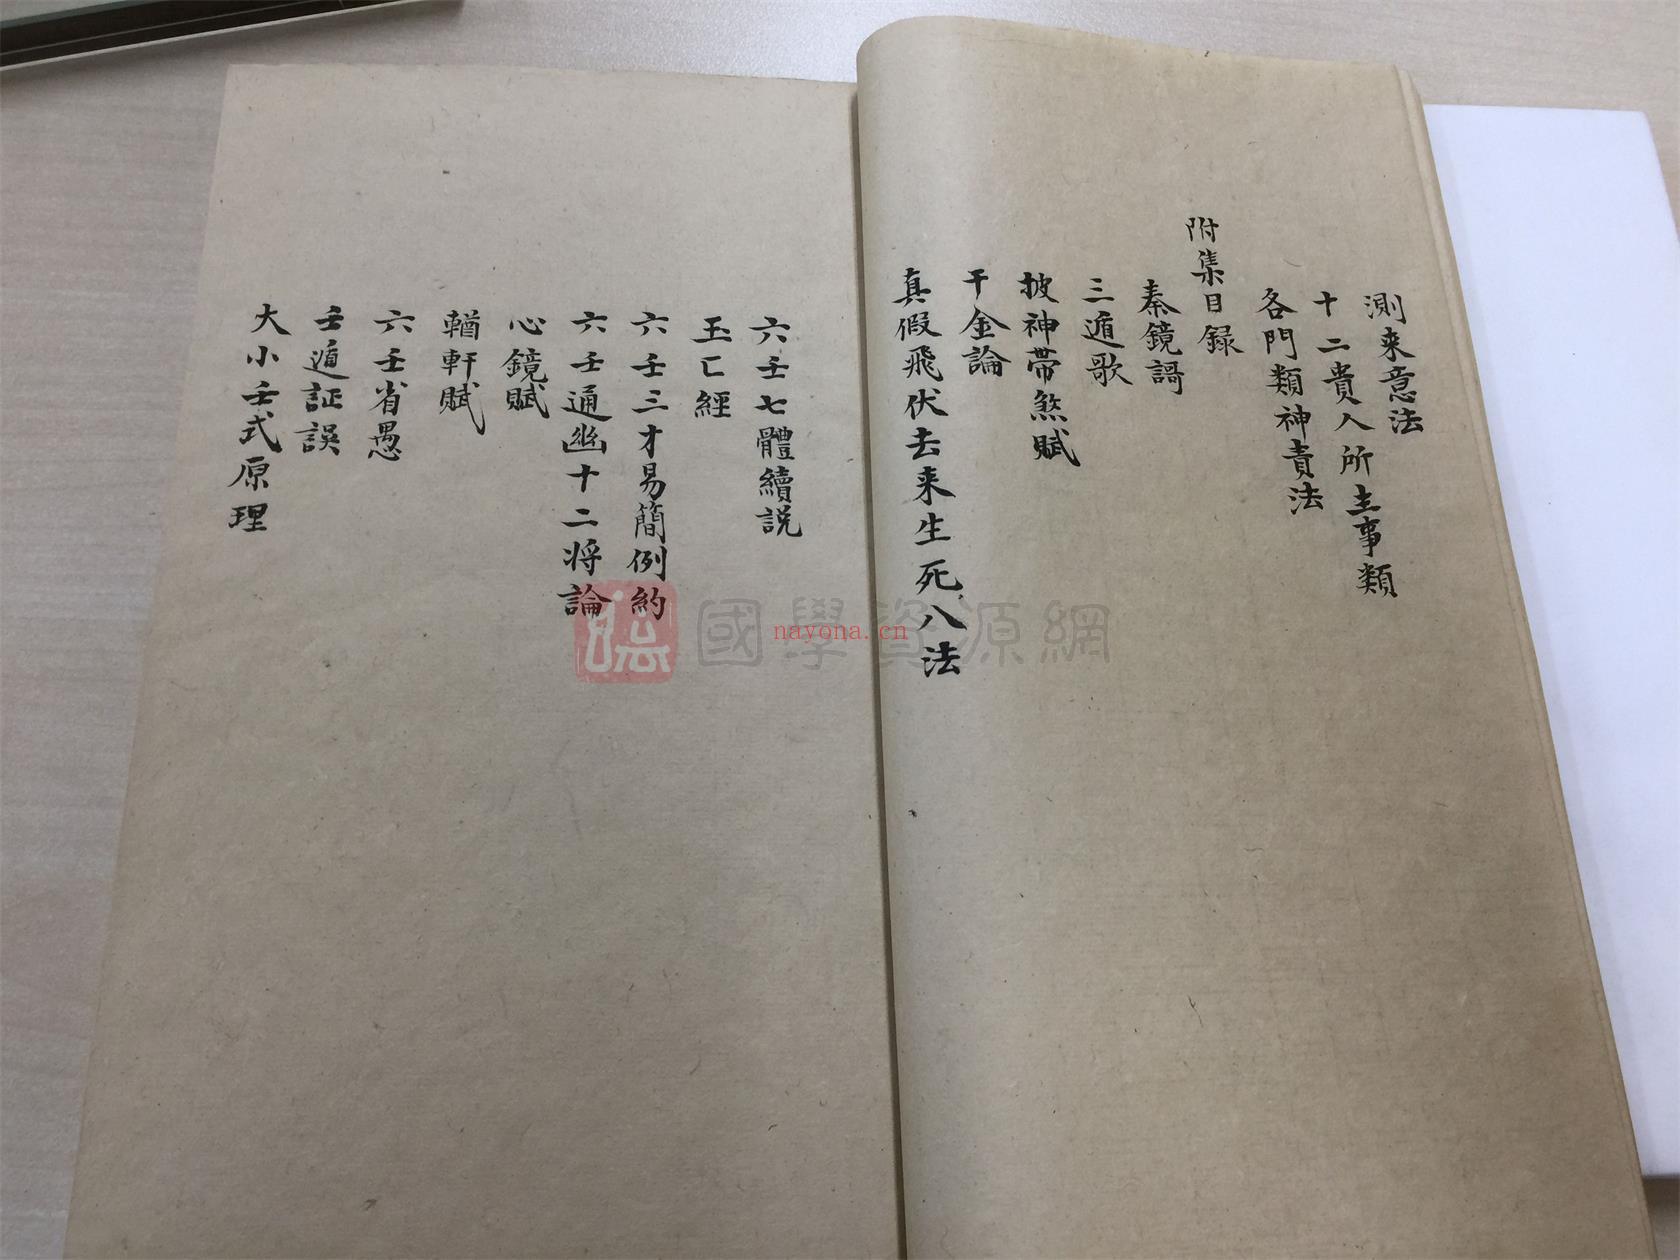 測來意法
十二貴人所主事類
各門類神責法
附集目録
秦鏡謌
三遁歌
披神帶煞賦
千金論
真假飛伏去来生死八法
六壬七體續説
玉匕經
六壬三才易簡例約
六壬通幽十二将論
心鏡賦
輶軒賦
六壬省愚
壬遁証誤
大小壬式原理
國學資源網
nayona.cn